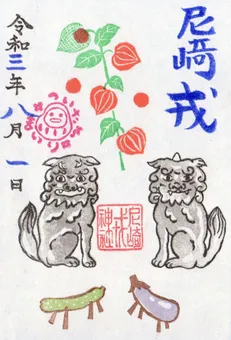 尼崎戎
令和三年八月一日
尼崎
戎
神社